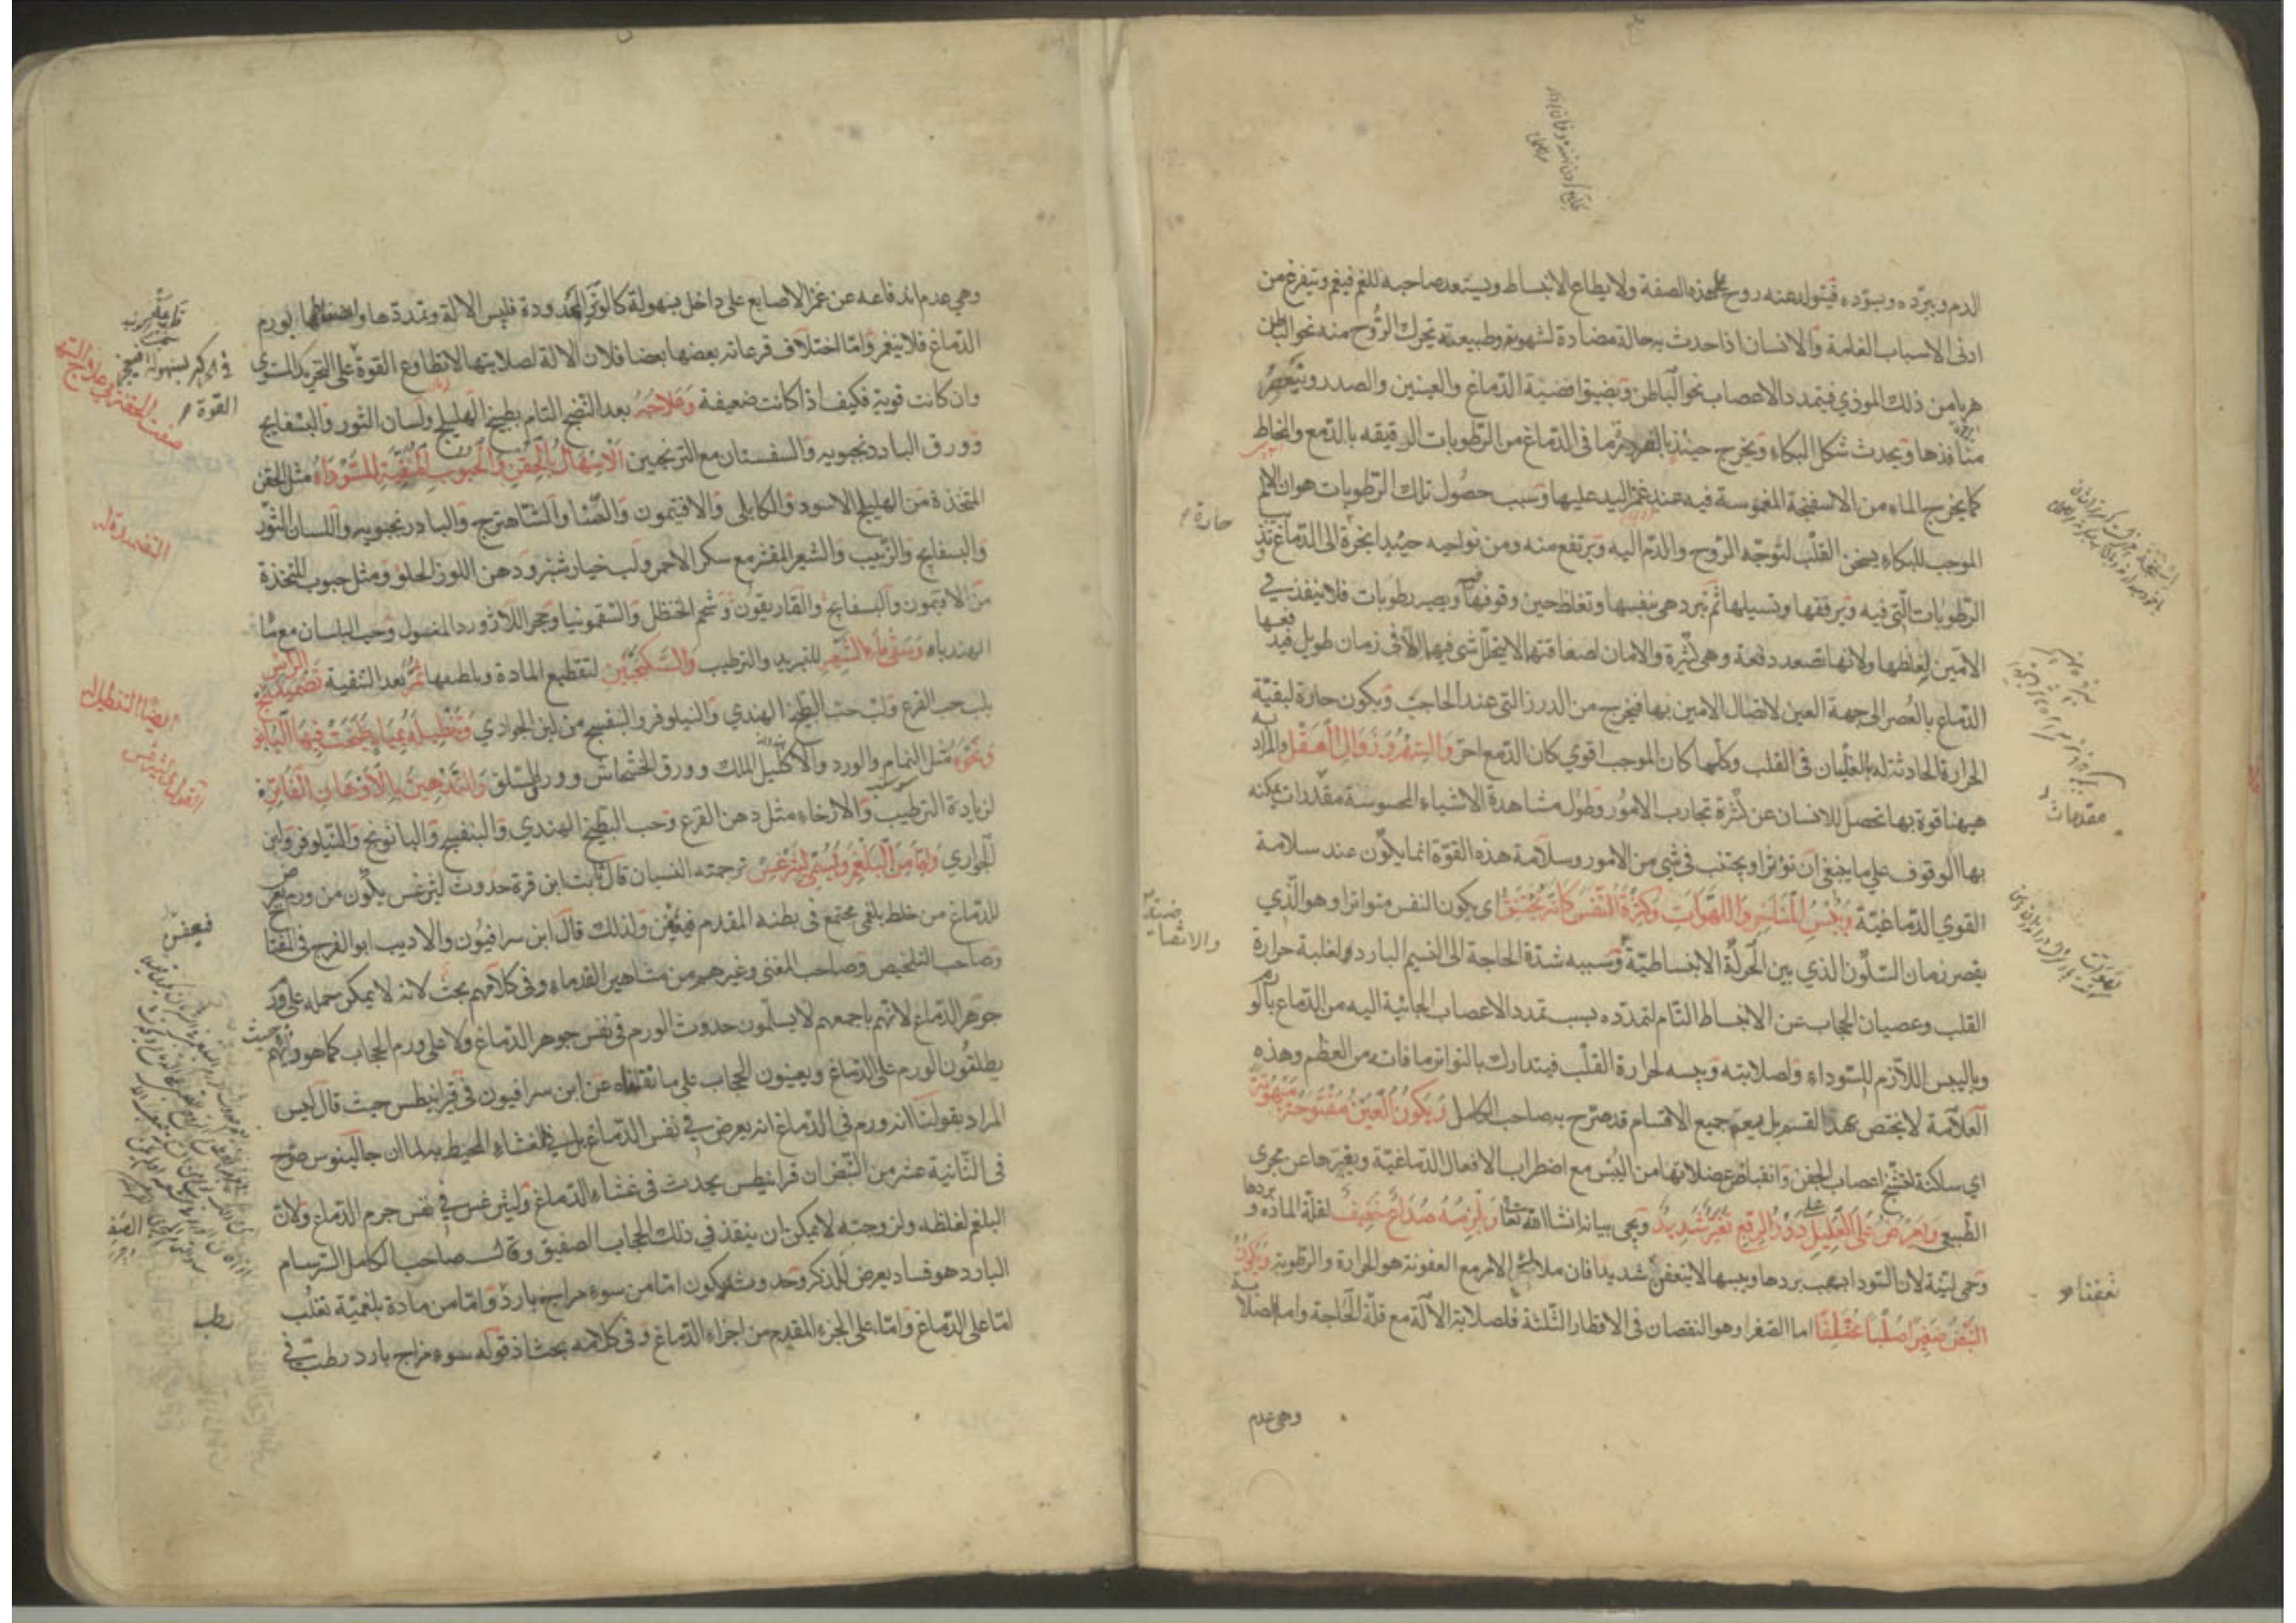 الدم ويبرده ويسوده فيتولد عنه روح على هذه الصفة ولا يطاع الانبساط ويستعد صاحبه للغم فيغم ويتفرغ من
ادنى الاسباب الغامة والانسان اذا حدث به حالة مضادة لشهوته وطبيعته تحرك الروح منه نحو الباطن
هربا من ذلك الموذي فيتمدد الاعصاب نحو الباطن ويضيق افضية الدماغ والعينين والصدر وينعصر
منافذها ويحدث شكل البكاء ويخرج حينئذ بالضرورة ما في الدماغ من الرطوبات الرقيقه بالدمع والمخاط
كما يخرج الماء من الاسفنجة المغموسة فيه عند غمز اليد عليها وسبب حصول تلك الرطوبات هو ان الالم
الموجب للبكاء يسخن القلب لتوجه الروح والدم اليه ويرتفع منه ومن نواحيه حينئذ ابخرة الى الدماغ تذيب
الرطوبات التي فيه ويرققها وتسيلها ثم تبرد هي بنفسها وتغلظ حين وقوفها ويصير رطوبات فلا ينفذ في
الامين لغلظها ولانها تصعد دفعة وهي كثيرة والامان لصفاقتها لا يتحلل شي فيهما الا في زمان طويل فيدفعها
الدماغ بالعصر الى جهة العين لاتصال الامين بها فيخرج من الدرز التي عند الحاجب ويكون حارة لبقية
الحرارة الحادثة له بالغليان في القلب وكلما كان الموجب اقوي كان الدمع احر والسهر وزوال العقل والمراد به
ههنا قوة بها تحصل للانسان عن كثرة تجارب الامور وطول مشاهدة الاشياء المحسوسة مقدرات يمكنه
بها الوقوف على ما ينبغي ان نوثر او يجتنب في شي من الامور وسلامة هذه القوة انما يكون عند سلامة
القوي الدماغية ويبس المناخر واللهوات وكثرة النفس كانه يختنق اي يكون النفس متواترا وهو الذي
يقصر زمان السكون الذي بين الحركة الانبساطية وسببه شدة الحاجة الى النسيم البارد لغلبة حرارة
القلب وعصيان الحجاب عن الانبساط التام لتمدده بسبب تمدد الاعصاب الجائية اليه من الدماغ بالورم
وباليبس اللازم للسوداء ولصلابته ويبسه لحرارة القلب فيتدارك بالتواتر ما فاته من العظم وهذه
العلامة لا يختص بهذا القسم بل يعم جميع الاقسام قد صرح به صاحب الكامل ويكون العين مفتوحة مبهوتة
اي ساكنة لتشنج اعصاب الجفن وانقباض عضلاتها من اليبس مع اضطراب الافعال الدماغية وبغيرها عن مجرى
الطبيعي ويعرض على العليل على دور الربع تغير شديد ويجي بيانه انشا الله تعالى ويلزمه صداع خفيف لقلة المادة وبردها
وحمى لينة لان السوداء بسبب بردها ويبسها لا يتعفن شديدا فان ملائم الامر مع العفونة هو الحرارة والرطوبة ويكون
النبض صغيرا صلبا مختلفا اما الصغر وهو النقصان في الاقطار الثلثة فلصلابة الالة مع قلة الحاجة واما الصلابة
وهي عدم
حارة
مقدمات
والانقباضية
تعفنا
وهي عدم اندفاعه عن غمز الاصابع على داخل بسهولة كالوتر الممدودة فليبس الالة وتمددها بورم
الدماغ فلا ينغمز واما اختلاف قرعاته بعضها بعضا فلان الالة لصلابتها لا تطاوع القوة على التحريك المستوي
وان كانت قوية فكيف اذا كانت ضعيفة وعلاجه بعد النضج التام بطبيخ الهليلج ولسان الثور والبسفايج
وورق البادرنجبويه والسفستان مع الترنجبين الاسهال بالحقن والحبوب المنقية للسوداء مثل الحقن
المتخذة من الهليلج الاسود والكابلي والافتيمون والسنا والشاهترج والبادرنجبويه واللسان الثور
والبسفايج والزبيب والشعير المقشر مع سكر الاحمر ولب خيار شنبر ودهن اللوز الحلو ومثل حبوب المتخذة
من الافتيمون والبسفايج والغاريقون وشحم الحنظل والسقمونيا وحجر اللازورد المغسول وحب البلسان مع ماء
الهندباء ويسقى ماء الشعير للتبريد والترطيب والسكنجبين لتقطيع المادة وتلطيفها ثم بعد التنقية تضميد الراس
بلب حب القرع ولب حب البطيخ الهندي والنيلوفر والبنفسج من لبن الجواري وتنطيله بمياه طبخت فيها البابونج
ونحوه مثل النمام والورد والاكليل الملك وورق الخشخاش وورق السلق والتدهين بالادهان الفاترة
لزيادة الترطيب والارخاء مثل دهن القرع وحب البطيخ الهندي والبنفسج والبابونج والنيلوفر ولبن
الجواري واما من البلغم ويسمى ليثرغس ترجمته النسيان قال ثابت ابن قرة حدوث ليثرغس يكون من ورم يعرض
للدماغ من خلط بلغمي مجتمع في بطنه المقدم فيعفن ولذلك قال ابن سرافيون والاديب ابو الفرج في المفتاح
وصاحب التلخيص وصاحب المغنى وغيرهم من مشاهير القدماء وفي كلامهم بحث لانه لا يمكن حمله على ورم
جوهر الدماغ لانهم باجمعهم لا يسلمون حدوث الورم في نفس جوهر الدماغ ولا على ورم الحجاب كما هو
يطلقون الورم على الدماغ ويعنون الحجاب على ما نقلناه عن ابن سرافيون في قرانيطس حيث قال ليس
المراد بقولنا انه ورم في الدماغ انه يعرض في نفس الدماغ بل في الغشاء المحيط به لما ان جالينوس صرح
في الثانية عشر من النبض ان قرانيطس يحدث في غشاء الدماغ وليثرغس في نفس جرم الدماغ ولان
البلغم لغلظه ولزوجته لا يمكن ان ينفذ في ذلك الحجاب الصفيق وقال صاحب الكامل السرسام
البارد هو فساد يعرض للذكر وحدوثه يكون اما من سوء مزاج بارد واما من مادة بلغمية تغلب
اما على الدماغ واما على الجزء المقدم من اجزاء الدماغ وفي كلامه بحث اذ قوله سوء مزاج بارد رطب في
القوة
فيعفن